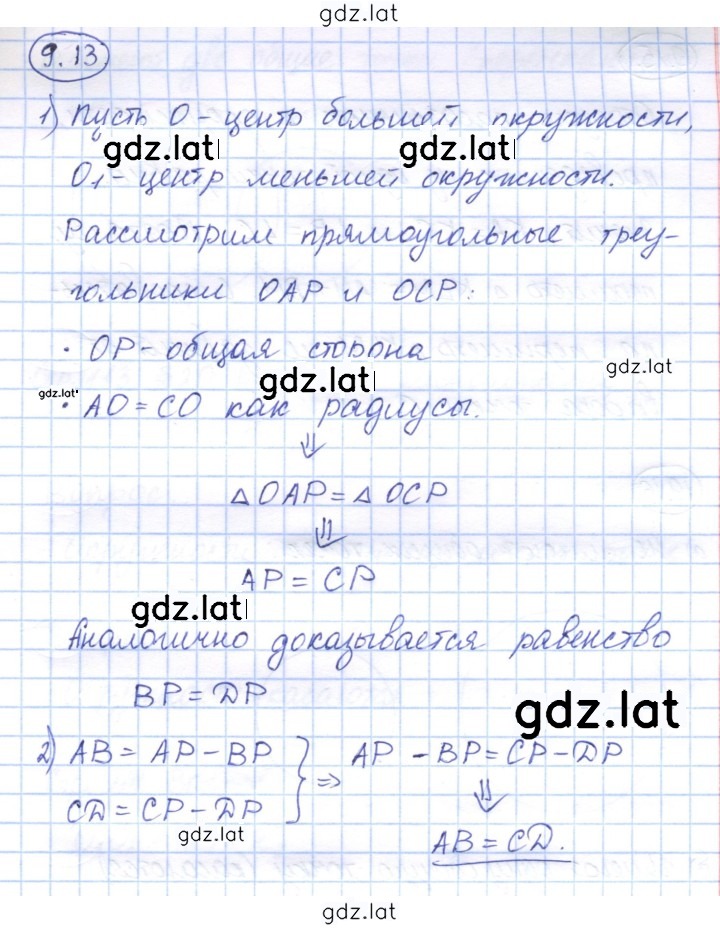 gdz.lat
9.13
1) Пусть O - центр большей окружности,
gdz.lat gdz.lat
O₁ - центр меньшей окружности.
Рассмотрим прямоугольные треу-
гольники OAP и OCP:
· OP - общая сторона
gdz.lat gdz.lat
gdz.lat
· AO = CO как радиусы.
⇓
△OAP = △OCP
⇓
AP = CP
gdz.lat
Аналогично доказывается равенство
BP = DP
gdz.lat
2) AB = AP - BP } ⇒ AP - BP = CP - DP
CD = CP - DP
⇓
gdz.lat
AB = CD.
gdz.lat